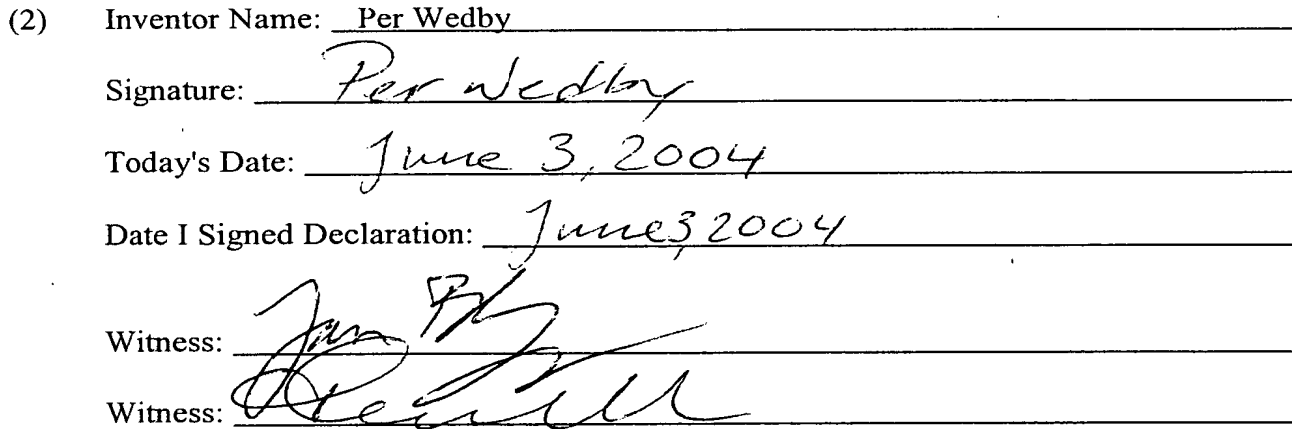 (2) Inventor Name: Per Wedby
Signature: Per Wedby
Today's Date: June 3, 2004
Date I Signed Declaration: June 3, 2004
Witness: Jan
Witness: